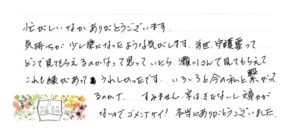 忙がしいなかありがとうございます。
気持ちが少し楽になったような気がします。前世、守護霊って
どこで見てもらえるのかなって思っていたら 瀬川さんで見てもらえて
これも縁があって うれしかったです。いろいろと今の私と繋がって
るのか?。すみません、字はきたないし文章が
なってなくてゴメンナサイ! 本当にありがとうございました。